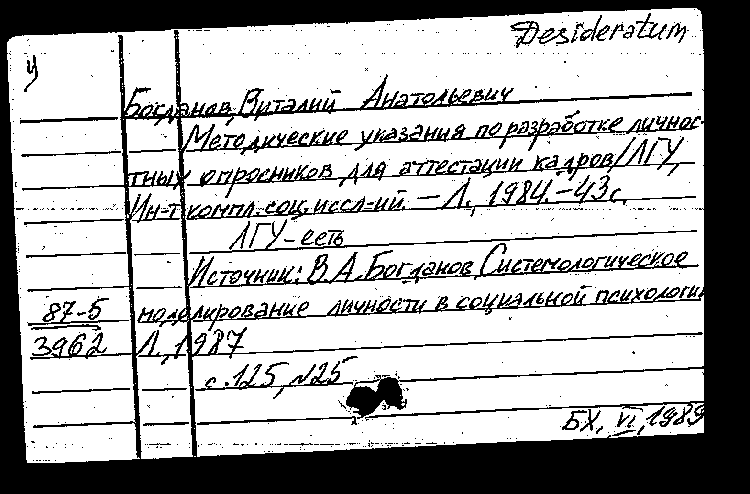 Desideratum
У
Богданов, Виталий Анатольевич
Методические указания по разработке личнос-
тных опросников для аттестации кадров/ЛГУ,
Ин-т компл. соц. иссл-ий. — Л., 1984. — 43 с.
ЛГУ - есть
Источник: В.А. Богданов, Системологическое
87-5 моделирование личности в социальной психологии
3962 Л., 1987
с. 125, N25
БХ, VI, 1989